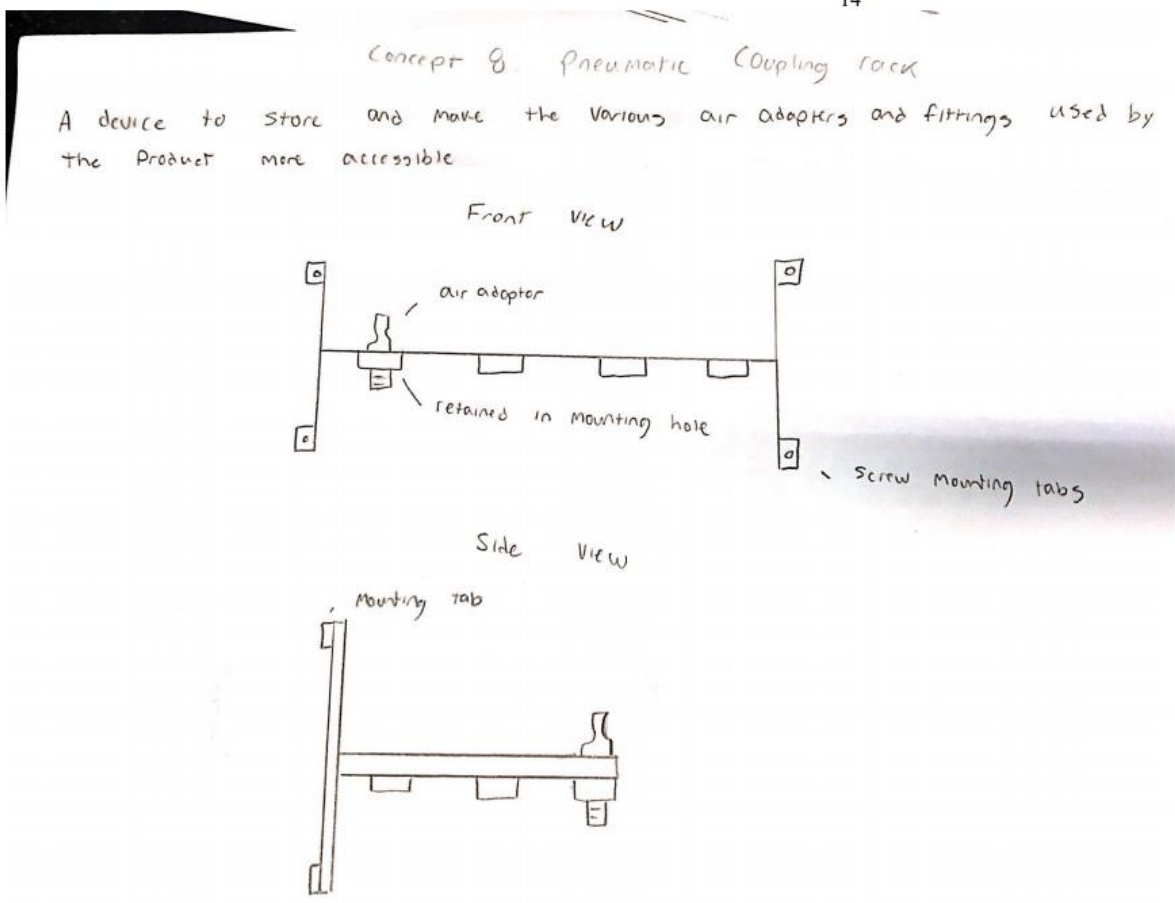 14
Concept 8. Pneumatic Coupling rack
A device to store and make the various air adapters and fittings used by
the Product more accessible
Front view
air adaptor
retained in mounting hole
Screw mounting tabs
Side view
Mounting tab